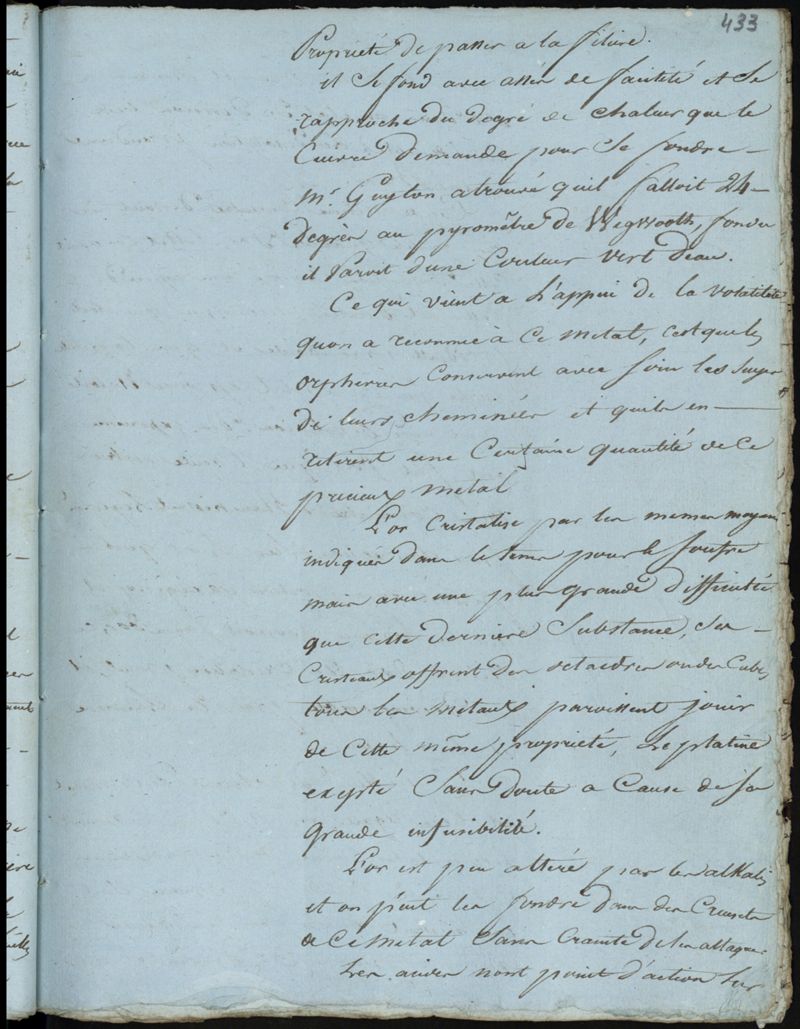 433
Propriété de passer a la filiere.
il se fond avec assez de facilité et se
rapproche du degré de chaleur que le
Cuivre demande pour se fondre –
Mr. Guyton a trouvé quil falloit 24 –
degrès au pyromêtre de Wegwooth, fondu
il Paroit d'une Couleur vert d'eau.
Ce qui vient a L'appui de la volatilité
quon a reconnue à Ce metal, c'est que les
orphevres Conservent avec soin les suyes
de leurs cheminées et quils en –
retirent une Certaine quantité de Ce
precieux metal
L'or Cristalise par les memes moyens
indiqués dans le tems pour le soufre
mais avec une plus grande difficulté
que cette derniere Substance, Ses –
Cristeaux offrent des octaedres ou des Cubes
tous les métaux paroissent jouir
de Cette même propriété, Le platine
exepté Sans doute a Cause de sa
grande infusibilité.
L'or est peu altéré par les alKalis
et on peut les fondre dans des Creusets
de Ce métal Sans Crainte de les attaquer
Les acides n'ont point d'action Sur